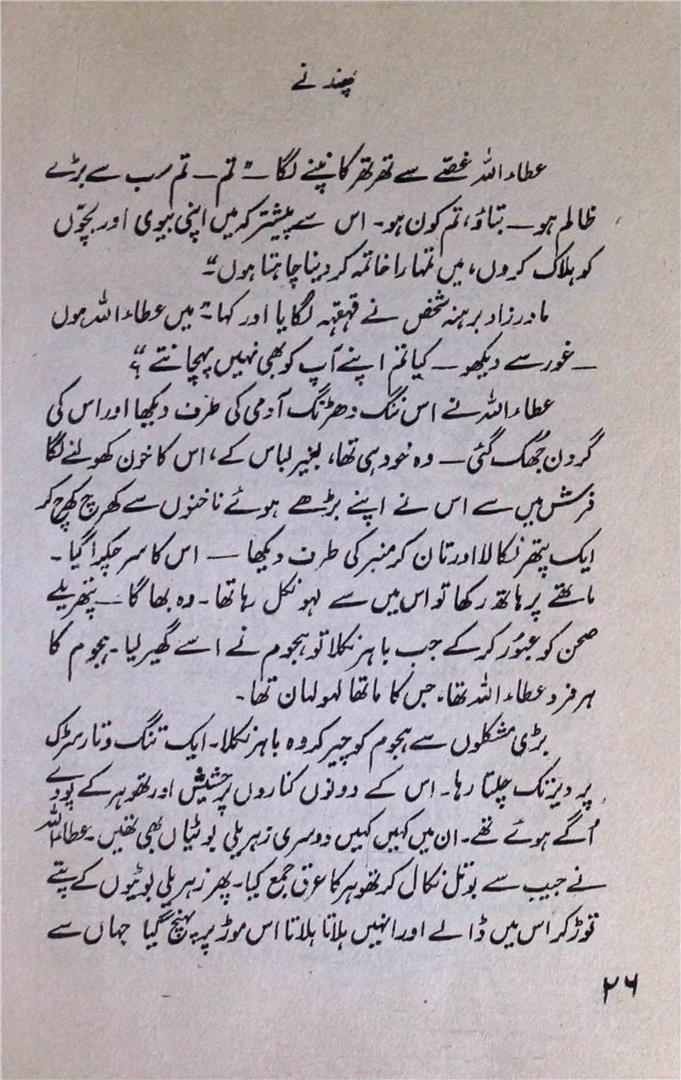 پھندنے
عطاء اللہ غصے سے تھر تھر کانپنے لگا ــ "تم ــ تم سب سے بڑے
ظالم ہو ــ بتاؤ، تم کون ہو۔ اس سے پیشتر کہ میں اپنی بیوی اور بچّوں
کو ہلاک کروں، میں تمہارا خاتمہ کر دینا چاہتا ہوں"
مادر زاد برہنہ شخص نے قہقہہ لگایا اور کہا۔ "میں عطاء اللہ ہوں
ــ غور سے دیکھو ــ کیا تم اپنے آپ کو بھی نہیں پہچانتے ؟"
عطاء اللہ نے اس ننگ دھڑنگ آدمی کی طرف دیکھا اور اس کی
گردن جُھک گئی ــ وہ خود ہی تھا، بغیر لباس کے، اس کا خون کھولنے لگا
فرش میں سے اس نے اپنے بڑھے ہوئے ناخنوں سے کھرچ کھرچ کر
ایک پتھر نکالا اور تان کر منبر کی طرف دیکھا ــ اس کا سر چکرا گیا۔
ماتھے پر ہاتھ رکھا تو اس میں سے لہو نکل رہا تھا۔ وہ بھاگا ــ پتھریلے
صحن کو عبُور کر کے جب باہر نکلا تو ہجوم نے اسے گھیر لیا۔ ہجوم کا
ہر فرد عطاء اللہ تھا، جس کا ماتھا لہولہان تھا۔
بڑی مشکلوں سے ہجوم کو چیر کر وہ باہر نکلا۔ ایک تنگ و تار سڑک
پر دیر تک چلتا رہا۔ اس کے دونوں کناروں پر حشیش اور تھوہر کے پودے
اُگے ہوئے تھے۔ ان میں کہیں کہیں دوسری زہریلی بوٹیاں بھی تھیں۔ عطاء اللہ
نے جیب سے بوتل نکال کر تھوہر کا عرق جمع کیا۔ پھر زہریلی بوٹیوں کے پتے
توڑ کر اس میں ڈالے اور انہیں ہلاتا ہلاتا اس موڑ پر پہنچ گیا جہاں سے
۲۶